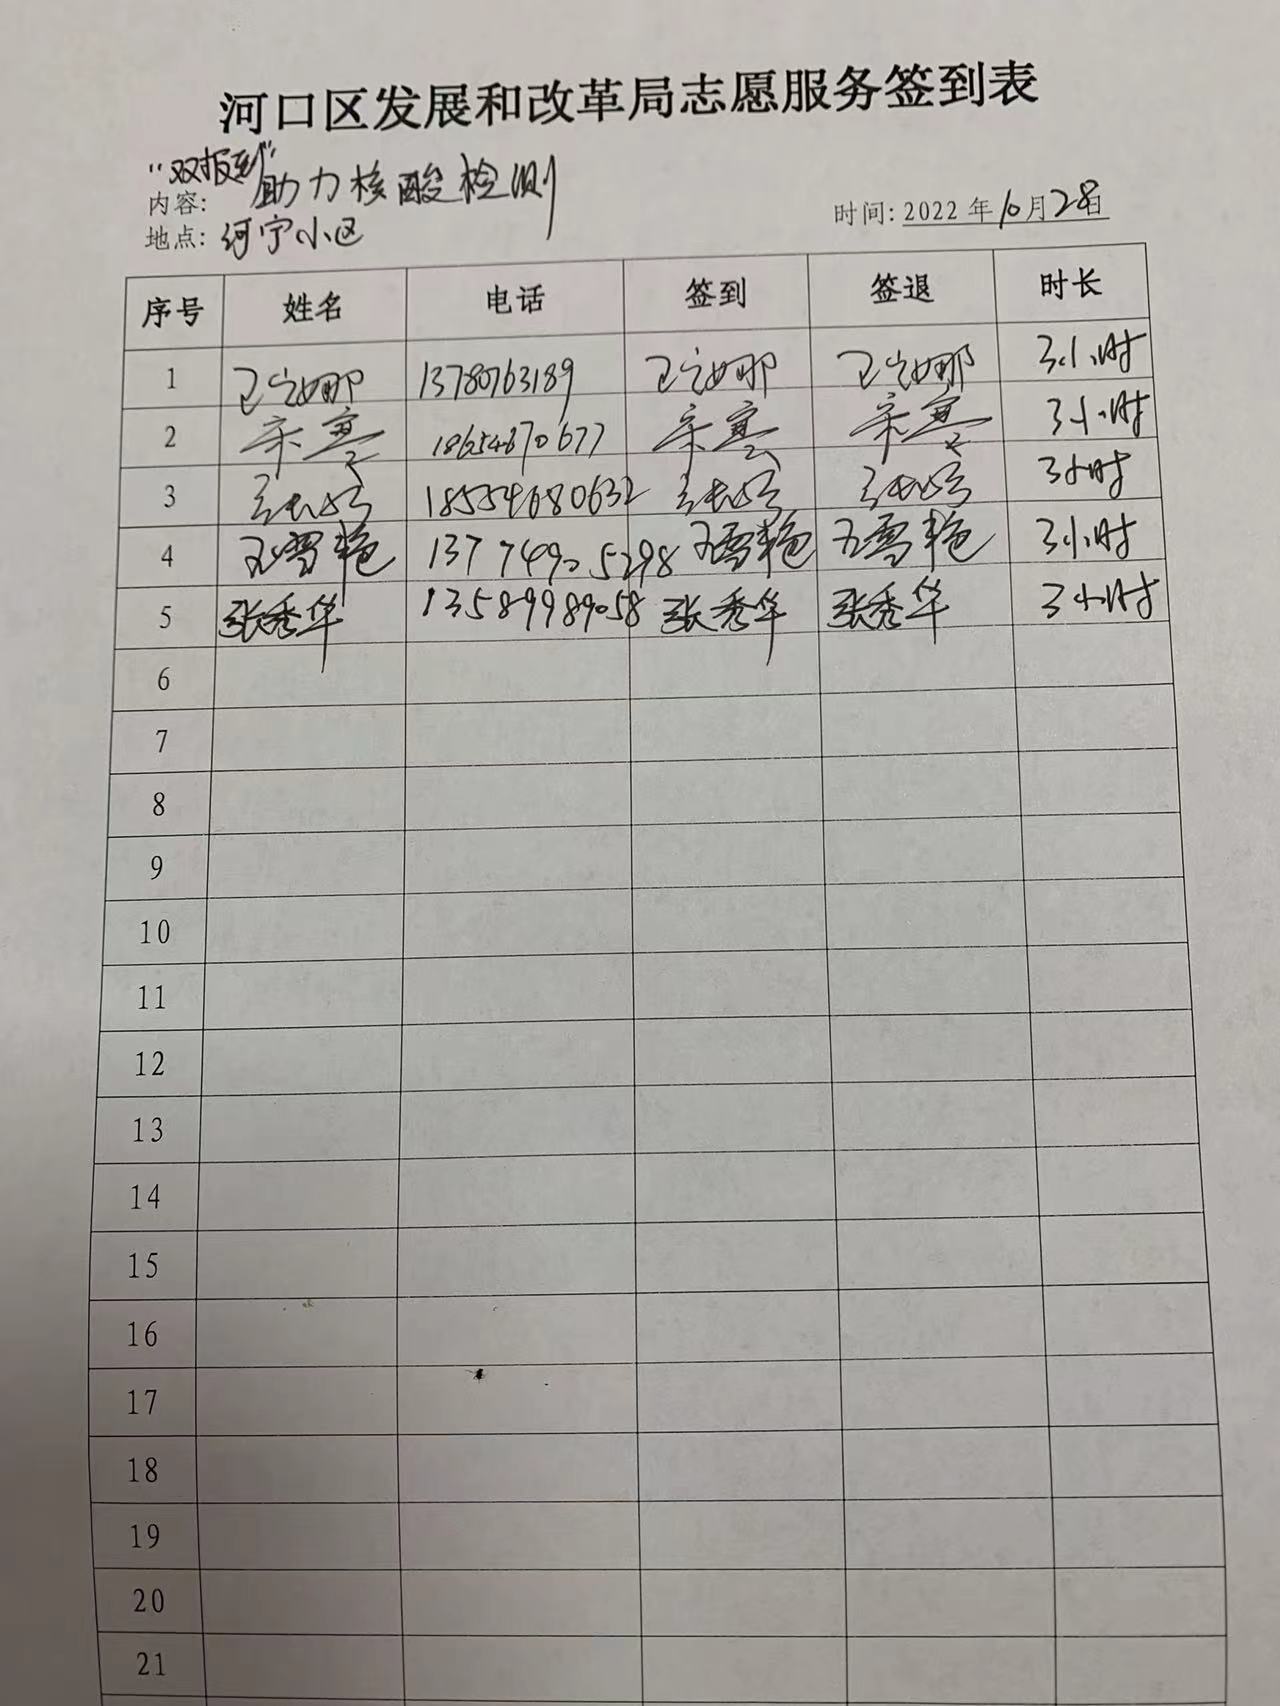 河口区发展和改革局志愿服务签到表
"双报到"
内容: 助力核酸检测
地点: 河宁小区
时间: 2022年10月28日
序号 姓名 电话 签到 签退 时长
1 13780763189 3小时
2 18654670677 3小时
3 18554680632 3小时
4 王雪艳 13774905298 王雪艳 王雪艳 3小时
5 张秀华 13589989058 张秀华 张秀华 3小时
6
7
8
9
10
11
12
13
14
15
16
17
18
19
20
21